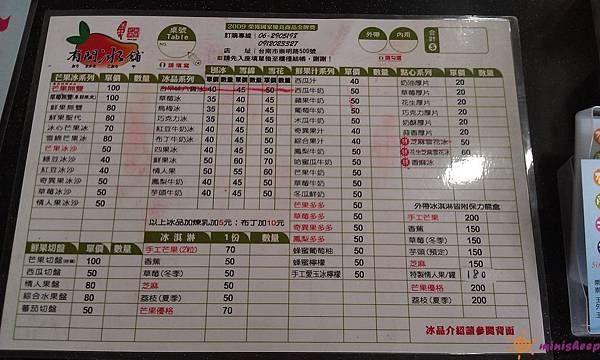 有間冰舖
桌號
Table
請填寫
2009 榮獲國家優良商品金牌獎
訂購專線:06-2905198
0912023327
店 址:台南市崇明路500號
※請先入座填單後至櫃檯結帳,謝謝!
外帶
內用
請勾選
合計
$
芒果冰系列 單價 數量
芒果無雙 100
鮮果無雙 80
鮮果聖代 80
冰心芒果冰 70
雪綿芒果冰 80
芒果冰沙 50
綠豆冰沙 40
紅豆冰沙 40
奇異果冰沙 50
草莓冰沙 50
情人果冰沙 50
冰品系列
刨冰 雪綿 雪花
單價 數量 單價 數量 單價 數量
古早味六寶冰 40 45 50
草莓冰 35 40 45
烏梅冰 35 40 45
巧克力冰 35 40 45
紅豆牛奶冰 40 45 50
布丁牛奶冰 40 45 50
四果冰 40 45 50
鮮果冰 50 60 70
情人果 50 55 60
鳳梨牛奶 40 45 50
草莓牛奶 40 45 50
芋頭牛奶 40 45 50
以上冰品加煉乳加5元;布丁加10元
鮮果汁系列 單價 數量
西瓜汁 40
西瓜牛奶 50
蘋果牛奶 50
葡萄牛奶 50
木瓜牛奶 50
奇異果汁 50
綜合果汁 40
鳳梨牛奶 50
哈蜜瓜牛奶 50
芒果牛奶 50
草莓牛奶 50
芒果多多 50
草莓多多 50
奇異果多多 50
鳳梨多多 50
蜂蜜葡萄柚 50
蜂蜜檸檬 50
手工愛玉冰檸檬 50
點心系列 單價 數量
奶油厚片 20
草莓厚片 20
花生厚片 20
巧克力厚片 20
奶酥厚片 20
蒜香厚片 20
芝麻雪花冰 50
花生芝麻雪花冰 60
香麻冰 50
外帶冰淇淋皆附保力龍盒
手工芒果 200
香蕉 150
草莓(冬季) 150
芋頭(預定) 150
芝麻 150
特製情人果/罐 180
芒果優格 200
荔枝(夏季) 200
鮮果切盤 單價 數量
芒果切盤 100
西瓜切盤 50
情人果盤 80
綜合水果盤 80
蕃茄切盤 50
冰淇淋 1份 數量
手工芒果(2粒) 70
香蕉 50
草莓(冬季) 50
芋頭 50
芝麻 50
荔枝(夏季) 50
芒果優格 70
冰品介紹請參閱背面
minisheep